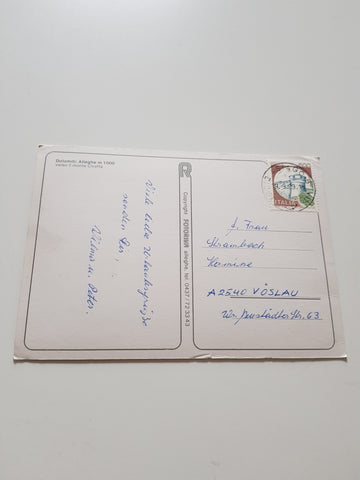 Dolomiti Alleghe m 1000
verso il monte Civetta
Viele liebe Urlaubsgrüsse
senden Dir,
Wilma u. Peter.
Copyright FOTORIVA alleghe, tel. 0437/72 33 43
R
ITALIA
Frau
Strambach
Hermine
A2540 VÖSLAU
Wr. Neustädter Str. 63